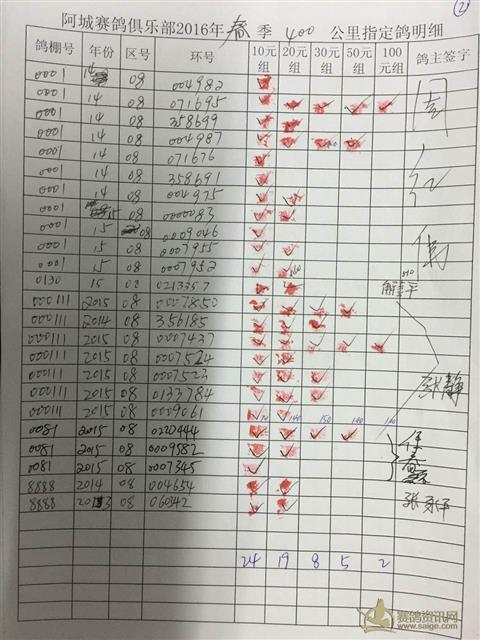 ②
阿城赛鸽俱乐部2016年春季400公里指定鸽明细
鸽棚号 年份 区号 环号 10元组 20元组 30元组 50元组 100元组 鸽主签字
0001 14 08 004982
0001 14 08 071695
0001 14 08 358699
0001 14 08 004987
0001 14 08 071676
0001 14 08 358691
0001 14 08 004975
0001 15 08 0000083
0001 15 08 0009046
0001 15 08 0007955
0001 15 08 0007952
0130 15 08
000111 2015 08 0007850
000111 2014 08 356185
000111 2015 08 0007437
000111 2015 08 0007524
000111 2015 08 0007523
000111 2015 08 0133784
000111 2015 08 0009061
0081 2015 08 0220444
0081 2015 08 0009582
0081 2015 08 0007345
8888 2014 08 004654
8888 2013 08 06042
24 19 8 5 2
赛鸽资讯网
www.saige.com